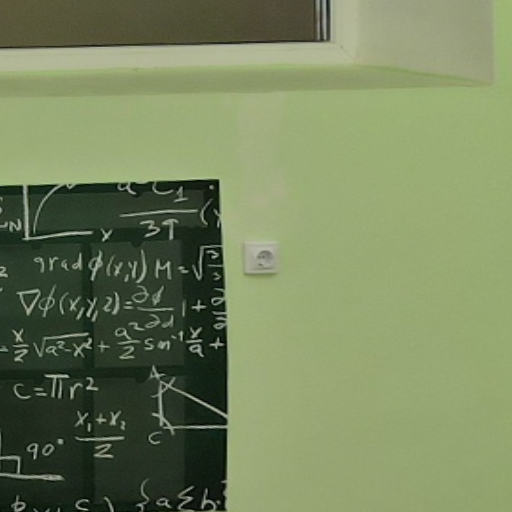 a C₁
N x 3T (y
grad φ(x,y) M = √
∇φ(x,y,z) = ∂φ/∂d i +
= x/2 √a²-x² + a²/2 sin⁻¹ x/a +
C = πr²
A
x₁+x₂/2
90° C
{a {b.